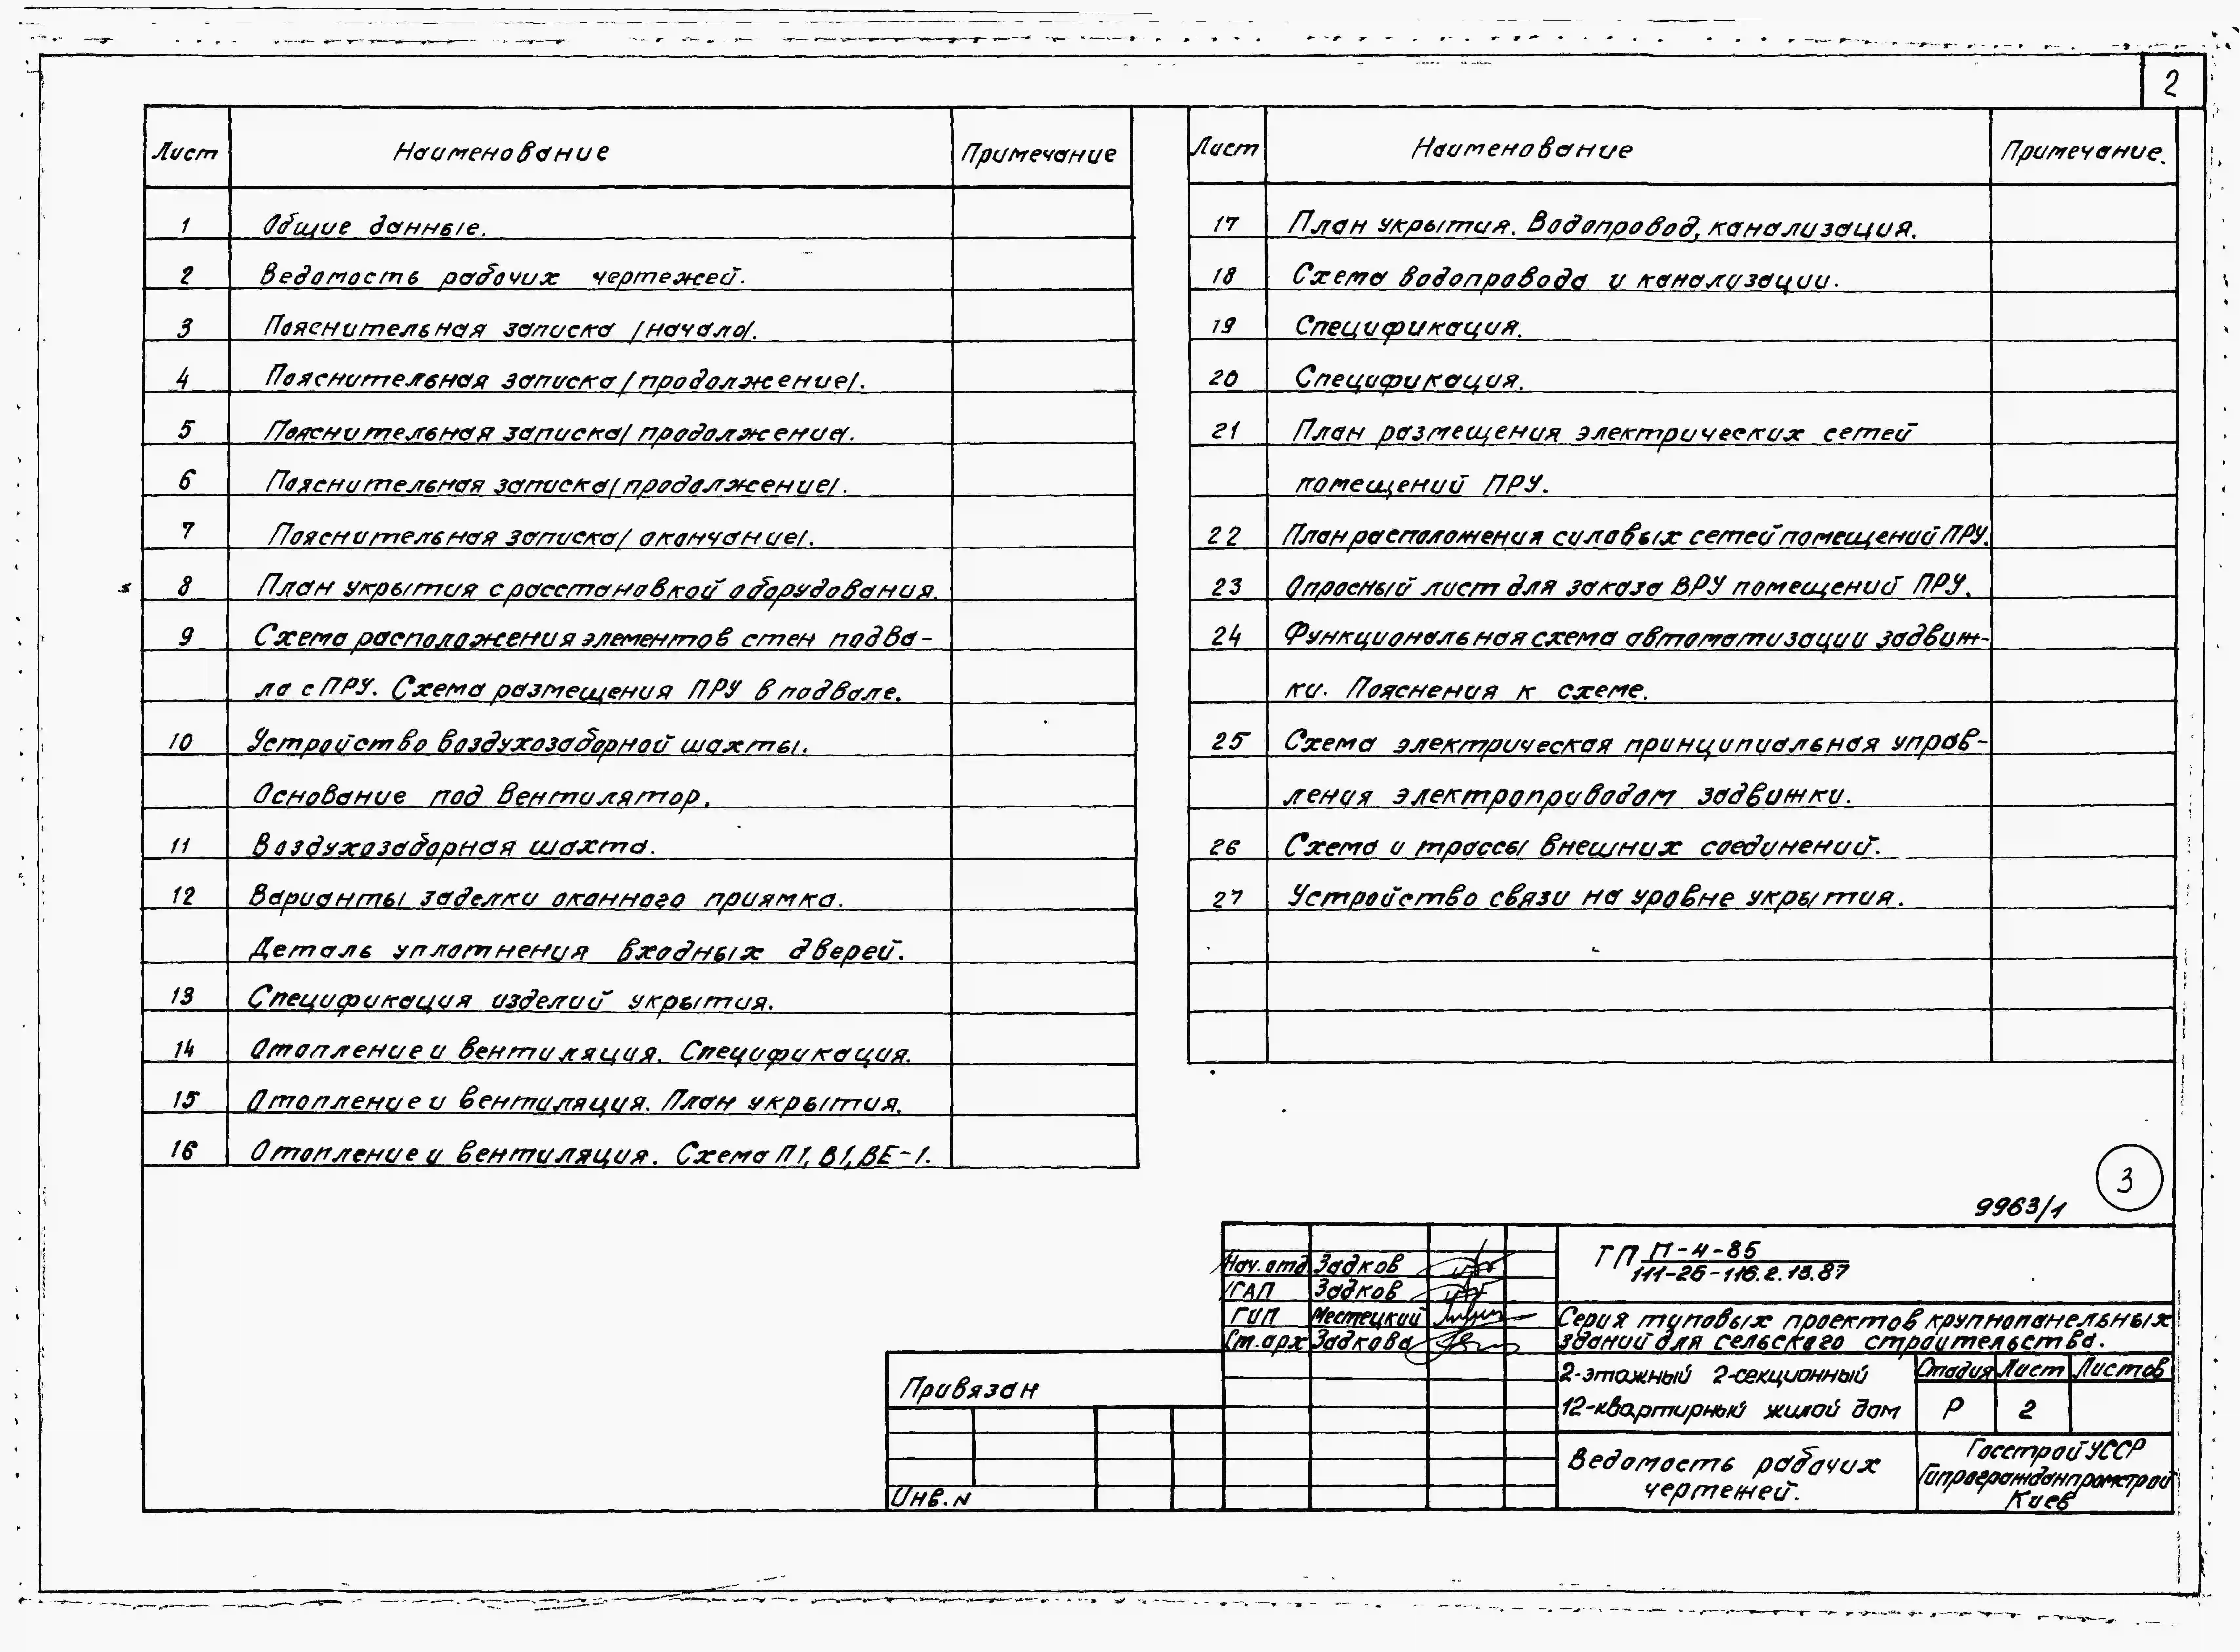 2
Лист Наименование Примечание
1 Общие данные.
2 Ведомость рабочих чертежей.
3 Пояснительная записка /начало/.
4 Пояснительная записка /продолжение/.
5 Пояснительная записка/ продолжение/.
6 Пояснительная записка/продолжение/.
7 Пояснительная записка/ окончание/.
8 План укрытия с расстановкой оборудования.
9 Схема расположения элементов стен подва-
ла с ПРУ. Схема размещения ПРУ в подвале.
10 Устройство воздухозаборной шахты.
Основание под вентилятор.
11 Воздухозаборная шахта.
12 Варианты заделки оконного приямка.
Деталь уплотнения входных дверей.
13 Спецификация изделий укрытия.
14 Отопление и вентиляция. Спецификация.
15 Отопление и вентиляция. План укрытия.
16 Отопление и вентиляция. Схема П1, В1, ВЕ-1.
Лист Наименование Примечание.
17 План укрытия. Водопровод, канализация.
18 Схема водопровода и канализации.
19 Спецификация.
20 Спецификация.
21 План размещения электрических сетей
помещений ПРУ.
22 План расположения силовых сетей помещений ПРУ.
23 Опросный лист для заказа ВРУ помещений ПРУ.
24 Функциональная схема автоматизации задвиж-
ки. Пояснения к схеме.
25 Схема электрическая принципиальная управ-
ления электроприводом задвижки.
26 Схема и трассы внешних соединений.
27 Устройство связи на уровне укрытия.
3
9963/1
Нач. отд Задков
ГАП Задков
ГИП Местецкий
Ст. арх Задкова
ТП П-4-85
111-26-116.2.13.87
Серия типовых проектов крупнопанельных
зданий для сельского строительства.
2-этажный 2-секционный
12-квартирный жилой дом
Стадия Лист Листов
Р 2
Ведомость рабочих
чертежей.
Госстрой УССР
Гипрогражданпромстрой
Киев
Привязан
Инв. N